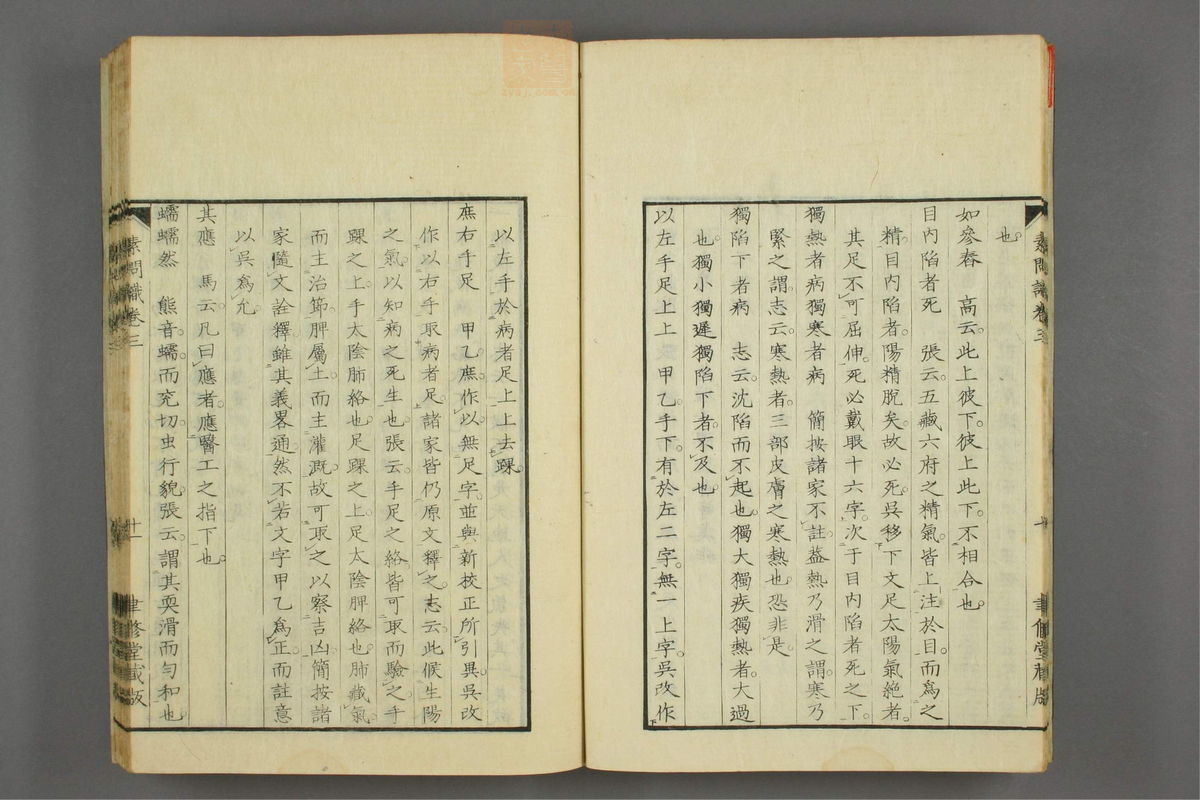 也
如參舂 高云此上彼下彼上此下不相合也
目內陷者死 張云五藏六府之精氣皆上注於目而爲之
精目內陷者陽精脫矣故必死吳移下文足太陽氣絶者
其足不可屈伸死必戴眼十六字次于目內陷者死之下
獨熱者病獨寒者病 簡按諸家不註蓋熱乃滑之謂寒乃
緊之謂志云寒熱者三部皮膚之寒熱也恐非是
獨陷下者病 志云沈陷而不起也獨大獨疾獨熱者大過
也獨小獨遲獨陷下者不及也
以左手足上上 甲乙手下有於左二字無一上字吳改作
素問識卷三 十一 聿修堂藏版
以左手於病者足上上去踝
庶右手足 甲乙庶作以無足字並與新校正所引異吳改
作以右手取病者足諸家皆仍原文釋之志云此候生陽
之氣以知病之死生也張云手足之絡皆可取而驗之手
踝之上手太陰肺絡也足踝之上足太陰脾絡也肺藏氣
而主治節脾屬土而主灌漑故可取之以察吉凶簡按諸
家隨文詮釋雖其義畧通然不若文字甲乙爲正而註意
以吳爲允
其應 馬云凡曰應者應醫工之指下也
蠕蠕然 熊音蠕而兖切虫行貌張云謂其耎滑而勻和也